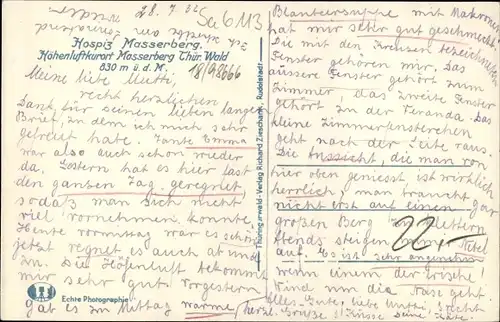 28.7.32
Sa 6113
18/98666
Hospiz Masserberg.
Höhenluftkurort Masserberg Thür. Wald
830 m ü. d. M.
Meine liebe Mutti,
recht herzlichen
Dank für deinen lieben langen
Brief, in dem ich mich sehr
gefreut habe. Tante Emma
war also auch schon wieder
da. Gestern hat es hier fast
den ganzen Tag geregnet
sodaß man sich nicht
viel vornehmen konnte.
Heute vormittag war es schön
jetzt regnet es auch ab und
zu. Die Höhenluft bekommt
mir sehr gut. Vorgestern
gab es zu Mittag warme
Echte Photographie
Thüringerwald-Verlag Richard Zieschank, Rudolstadt.
Blaubeersuppe mit Makronen
hat mir sehr gut geschmeckt.
Die mit den Kreuzen bezeichneten
Fenster gehören mir. Das
äussere Fenster gehört zum
Zimmer, das zweite Fenster
gehört zu der Veranda. Das
kleine Zimmerfensterchen
geht nach der Seite raus.
Die Aussicht, die man von
hier oben geniesst ist wirklich
herrlich, man braucht gar
nicht erst auf einen
großen Berg zu klettern.
Abends steigen immer Nebel
auf. Es ist sehr angenehm
wenn einem der frische
Wind um die Nase geht.
Alles Gute, liebe Mutti, recht
herzl. Grüße & Küsse deine Käte
22,-